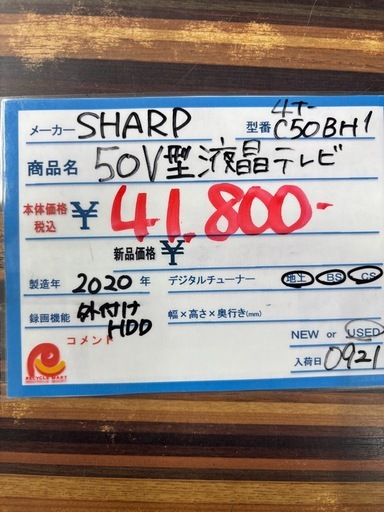 メーカー SHARP 型番 4T-C50BH1
商品名 50V型液晶テレビ
本体価格 税込 ¥ 41.800-
新品価格 ¥
製造年 2020年 デジタルチューナー 地上 BS CS
録画機能 外付けHDD 幅×高さ×奥行き(mm)
NEW or USED
コメント
入荷日 0921
RECYCLE MART